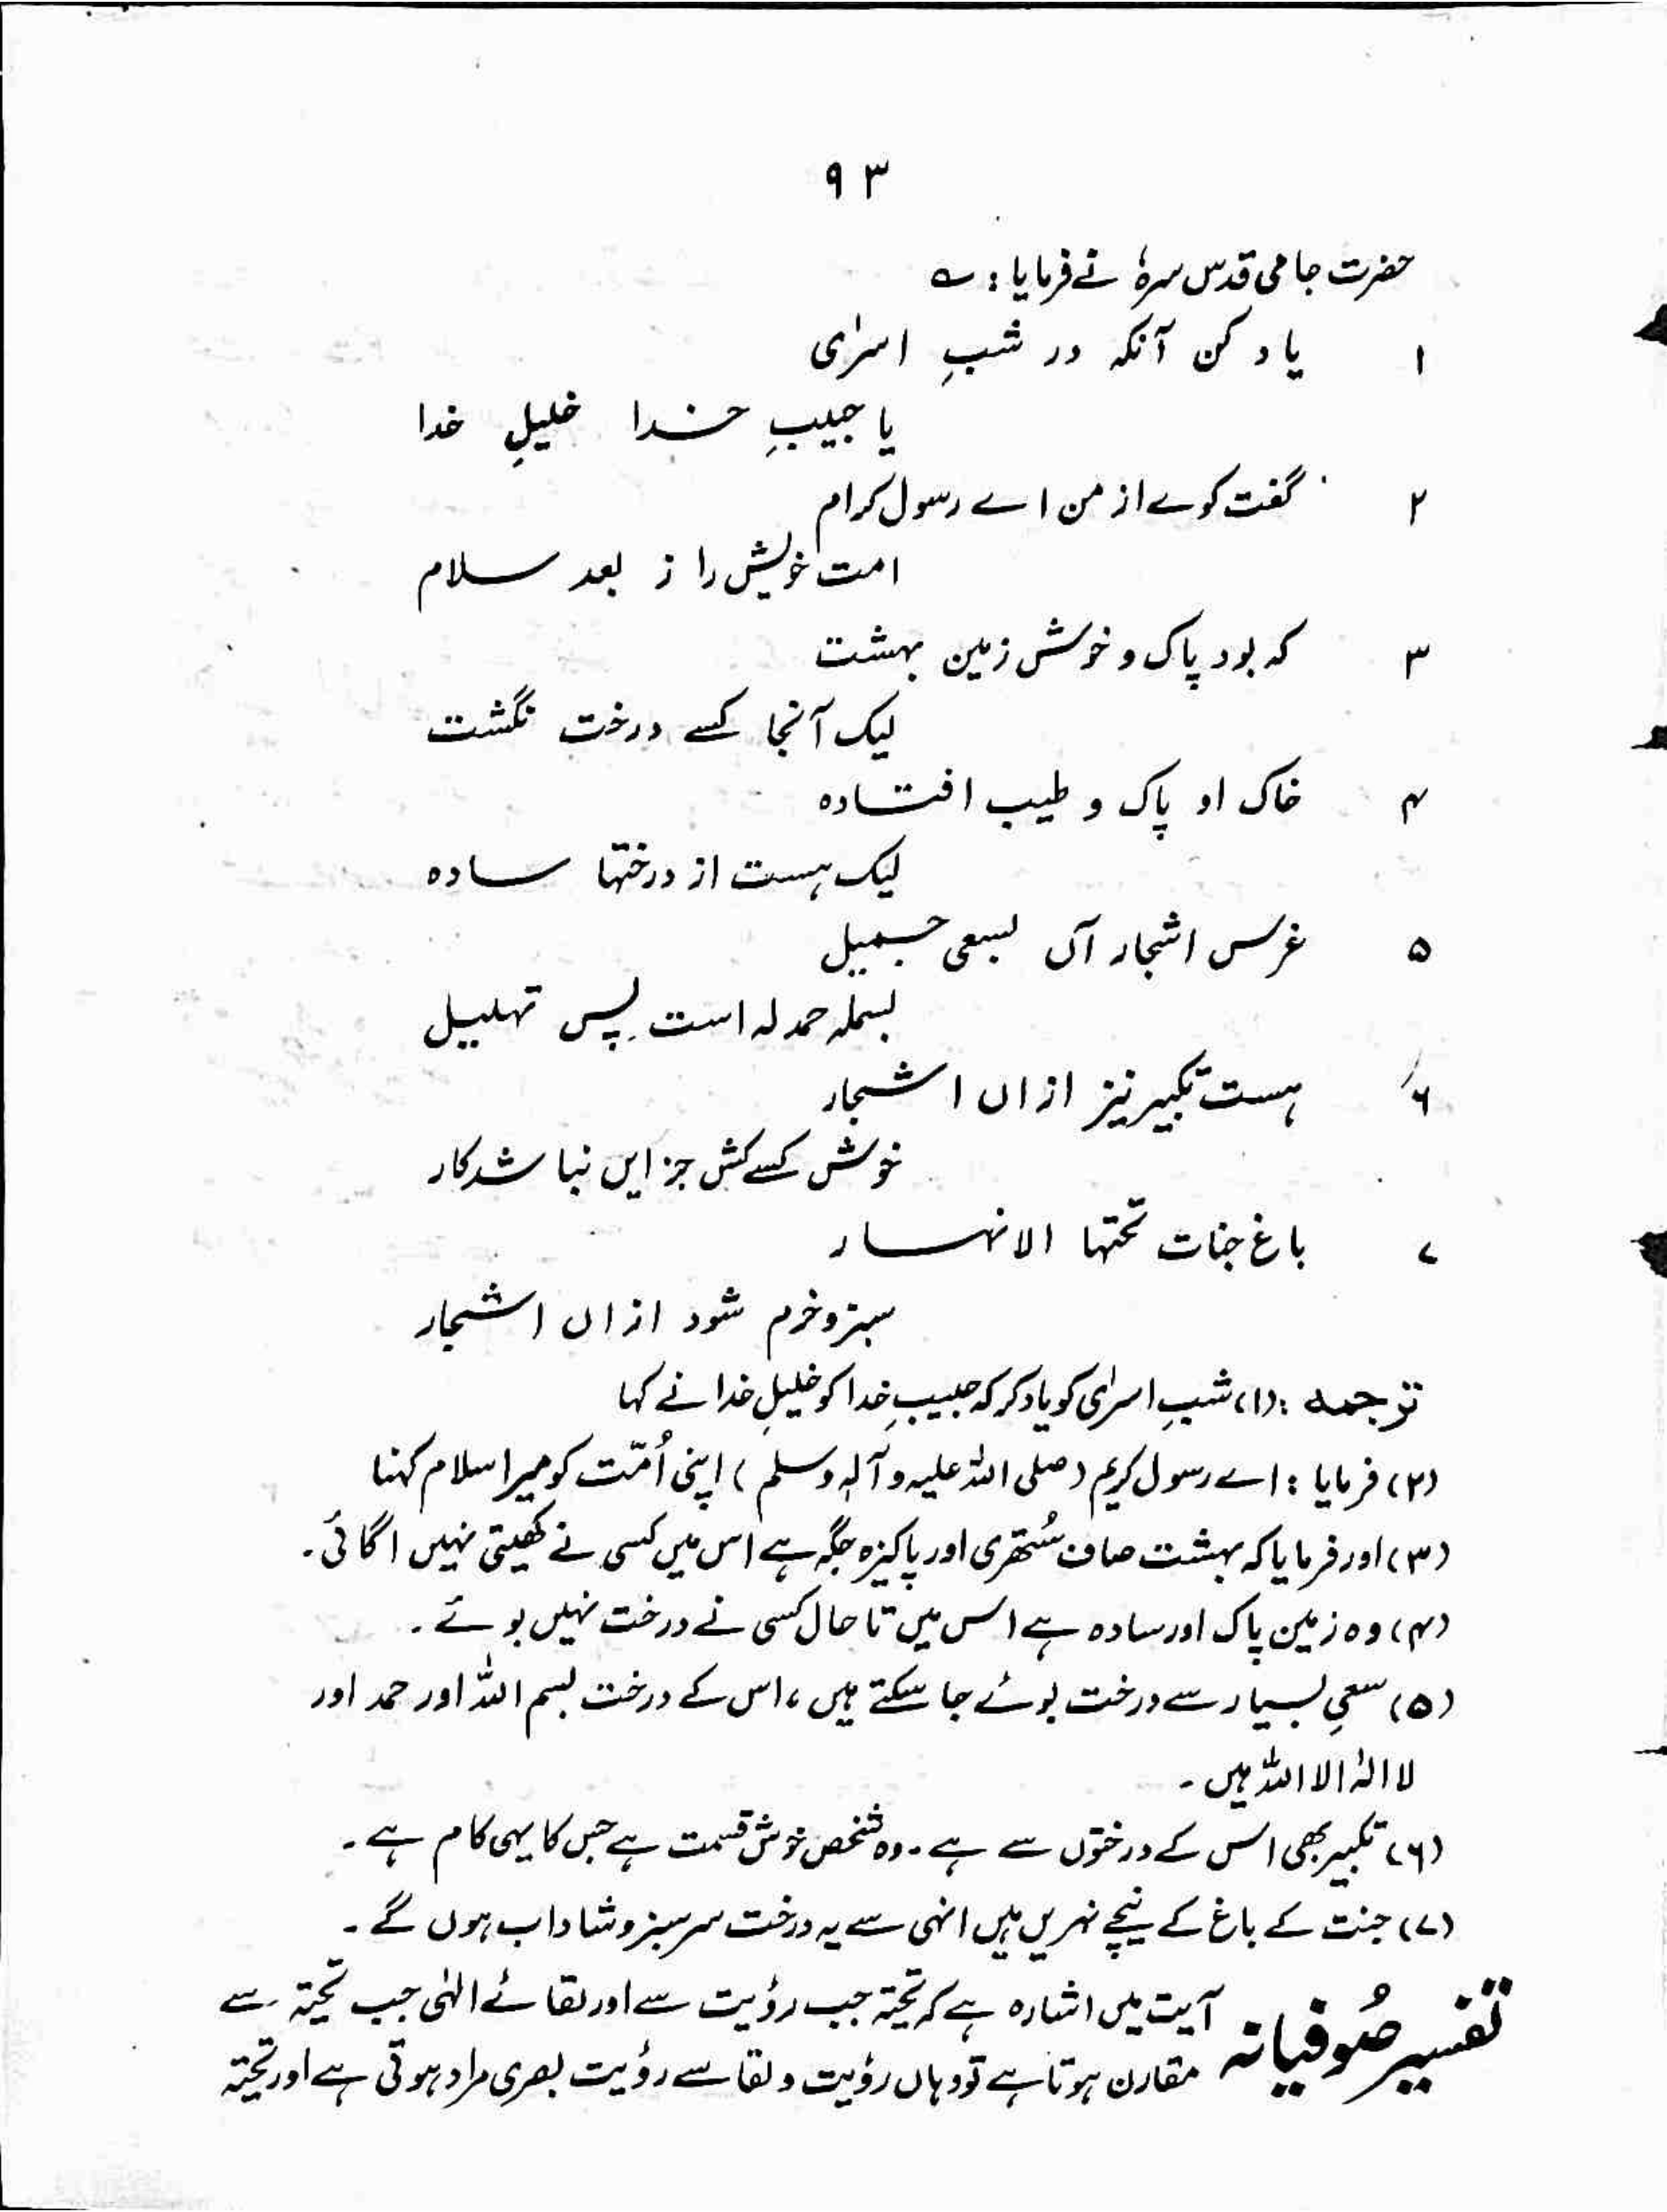 ۹۳
حضرت جامی قدس سرہٗ نے فرمایا : ؎
۱ یاد کن آنکہ در شبِ اسرٰی
یا حبیبِ خدا خلیلِ خدا
۲ گفت کوے از من اے رسول کرام
امت خویش را ز بعد سلام
۳ کہ بود پاک و خوش زمین بہشت
لیک آنجا کسے درخت نگشت
۴ خاک او پاک و طیب افتادہ
لیک ہست از درختہا سادہ
۵ غرس اشجار آں بسعی جمیل
بسملہ حمدلہ است پس تہلیل
۶ ہست تکبیر نیز ازاں اشجار
خوش کسے کش جز ایں نباشد کار
۷ باغ جنات تحتہا الانہار
سبز و خرم شود ازاں اشجار
ترجمہ : (۱) شبِ اسرٰی کو یاد کر کہ حبیبِ خدا کو خلیلِ خدا نے کہا
(۲) فرمایا : اے رسول کریم (صلی اللہ علیہ وآلہٖ وسلم) اپنی اُمّت کو میرا سلام کہنا
(۳) اور فرمایا کہ بہشت صاف سُتھری اور پاکیزہ جگہ ہے اس میں کسی نے کھیتی نہیں اگائی۔
(۴) وہ زمین پاک اور سادہ ہے اس میں تا حال کسی نے درخت نہیں بوئے۔
(۵) سعیِ بسیار سے درخت بوئے جا سکتے ہیں، اس کے درخت بسم اللہ اور حمد اور
لا الٰہ الا اللہ ہیں۔
(۶) تکبیر بھی اس کے درختوں سے ہے۔ وہ شخص خوش قسمت ہے جس کا یہی کام ہے۔
(۷) جنت کے باغ کے نیچے نہریں ہیں انہی سے یہ درخت سرسبز و شاداب ہوں گے۔
تفسیر صُوفیانہ آیت میں اشارہ ہے کہ تحیۃ جب رؤیت سے اور لقائے الٰہی جب تحیۃ سے
مقارن ہوتا ہے تو وہاں رؤیت و لقا سے رؤیت بصری مراد ہوتی ہے اور تحیۃ